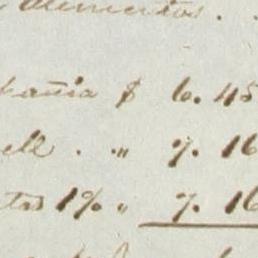 alimentos . .
pañia $ 6. 45
ell . " 7. 16
tas 1% " 7. 16